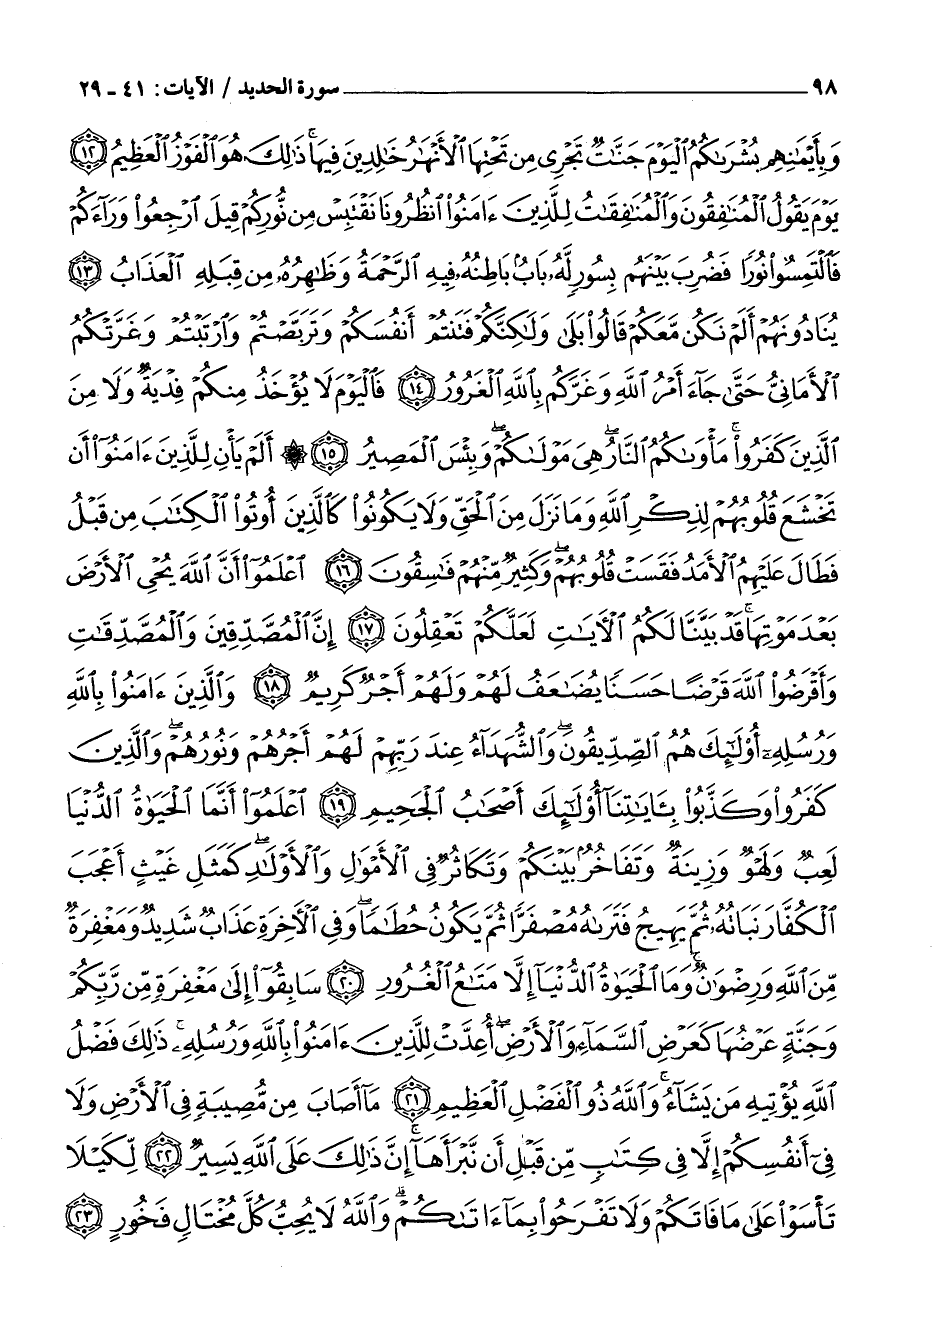 ٩٨ ــــــ سورة الحديد / الآيات: ٤١ - ٢٩
وَبِأَيْمَٰنِهِم بُشْرَىٰكُمُ ٱلْيَوْمَ جَنَّٰتٌ تَجْرِى مِن تَحْتِهَا ٱلْأَنْهَٰرُ خَٰلِدِينَ فِيهَا ۚ ذَٰلِكَ هُوَ ٱلْفَوْزُ ٱلْعَظِيمُ ﴿١٢﴾
يَوْمَ يَقُولُ ٱلْمُنَٰفِقُونَ وَٱلْمُنَٰفِقَٰتُ لِلَّذِينَ ءَامَنُوا۟ ٱنظُرُونَا نَقْتَبِسْ مِن نُّورِكُمْ قِيلَ ٱرْجِعُوا۟ وَرَآءَكُمْ
فَٱلْتَمِسُوا۟ نُورًا فَضُرِبَ بَيْنَهُم بِسُورٍ لَّهُۥ بَابٌۢ بَاطِنُهُۥ فِيهِ ٱلرَّحْمَةُ وَظَٰهِرُهُۥ مِن قِبَلِهِ ٱلْعَذَابُ ﴿١٣﴾
يُنَادُونَهُمْ أَلَمْ نَكُن مَّعَكُمْ قَالُوا۟ بَلَىٰ وَلَٰكِنَّكُمْ فَتَنتُمْ أَنفُسَكُمْ وَتَرَبَّصْتُمْ وَٱرْتَبْتُمْ وَغَرَّتْكُمُ
ٱلْأَمَانِىُّ حَتَّىٰ جَآءَ أَمْرُ ٱللَّهِ وَغَرَّكُم بِٱللَّهِ ٱلْغَرُورُ ﴿١٤﴾ فَٱلْيَوْمَ لَا يُؤْخَذُ مِنكُمْ فِدْيَةٌ وَلَا مِنَ
ٱلَّذِينَ كَفَرُوا۟ ۚ مَأْوَىٰكُمُ ٱلنَّارُ ۖ هِىَ مَوْلَىٰكُمْ ۖ وَبِئْسَ ٱلْمَصِيرُ ﴿١٥﴾ ۞ أَلَمْ يَأْنِ لِلَّذِينَ ءَامَنُوٓا۟ أَن
تَخْشَعَ قُلُوبُهُمْ لِذِكْرِ ٱللَّهِ وَمَا نَزَلَ مِنَ ٱلْحَقِّ وَلَا يَكُونُوا۟ كَٱلَّذِينَ أُوتُوا۟ ٱلْكِتَٰبَ مِن قَبْلُ
فَطَالَ عَلَيْهِمُ ٱلْأَمَدُ فَقَسَتْ قُلُوبُهُمْ ۖ وَكَثِيرٌ مِّنْهُمْ فَٰسِقُونَ ﴿١٦﴾ ٱعْلَمُوٓا۟ أَنَّ ٱللَّهَ يُحْىِ ٱلْأَرْضَ
بَعْدَ مَوْتِهَا ۚ قَدْ بَيَّنَّا لَكُمُ ٱلْءَايَٰتِ لَعَلَّكُمْ تَعْقِلُونَ ﴿١٧﴾ إِنَّ ٱلْمُصَّدِّقِينَ وَٱلْمُصَّدِّقَٰتِ
وَأَقْرَضُوا۟ ٱللَّهَ قَرْضًا حَسَنًا يُضَٰعَفُ لَهُمْ وَلَهُمْ أَجْرٌ كَرِيمٌ ﴿١٨﴾ وَٱلَّذِينَ ءَامَنُوا۟ بِٱللَّهِ
وَرُسُلِهِۦٓ أُو۟لَٰٓئِكَ هُمُ ٱلصِّدِّيقُونَ ۖ وَٱلشُّهَدَآءُ عِندَ رَبِّهِمْ لَهُمْ أَجْرُهُمْ وَنُورُهُمْ ۖ وَٱلَّذِينَ
كَفَرُوا۟ وَكَذَّبُوا۟ بِـَٔايَٰتِنَآ أُو۟لَٰٓئِكَ أَصْحَٰبُ ٱلْجَحِيمِ ﴿١٩﴾ ٱعْلَمُوٓا۟ أَنَّمَا ٱلْحَيَوٰةُ ٱلدُّنْيَا
لَعِبٌ وَلَهْوٌ وَزِينَةٌ وَتَفَاخُرٌۢ بَيْنَكُمْ وَتَكَاثُرٌ فِى ٱلْأَمْوَٰلِ وَٱلْأَوْلَٰدِ ۖ كَمَثَلِ غَيْثٍ أَعْجَبَ
ٱلْكُفَّارَ نَبَاتُهُۥ ثُمَّ يَهِيجُ فَتَرَىٰهُ مُصْفَرًّا ثُمَّ يَكُونُ حُطَٰمًا ۖ وَفِى ٱلْءَاخِرَةِ عَذَابٌ شَدِيدٌ وَمَغْفِرَةٌ
مِّنَ ٱللَّهِ وَرِضْوَٰنٌ ۚ وَمَا ٱلْحَيَوٰةُ ٱلدُّنْيَآ إِلَّا مَتَٰعُ ٱلْغُرُورِ ﴿٢٠﴾ سَابِقُوٓا۟ إِلَىٰ مَغْفِرَةٍ مِّن رَّبِّكُمْ
وَجَنَّةٍ عَرْضُهَا كَعَرْضِ ٱلسَّمَآءِ وَٱلْأَرْضِ أُعِدَّتْ لِلَّذِينَ ءَامَنُوا۟ بِٱللَّهِ وَرُسُلِهِۦ ۚ ذَٰلِكَ فَضْلُ
ٱللَّهِ يُؤْتِيهِ مَن يَشَآءُ ۚ وَٱللَّهُ ذُو ٱلْفَضْلِ ٱلْعَظِيمِ ﴿٢١﴾ مَآ أَصَابَ مِن مُّصِيبَةٍ فِى ٱلْأَرْضِ وَلَا
فِىٓ أَنفُسِكُمْ إِلَّا فِى كِتَٰبٍ مِّن قَبْلِ أَن نَّبْرَأَهَآ ۚ إِنَّ ذَٰلِكَ عَلَى ٱللَّهِ يَسِيرٌ ﴿٢٢﴾ لِّكَيْلَا
تَأْسَوْا۟ عَلَىٰ مَا فَاتَكُمْ وَلَا تَفْرَحُوا۟ بِمَآ ءَاتَىٰكُمْ ۗ وَٱللَّهُ لَا يُحِبُّ كُلَّ مُخْتَالٍ فَخُورٍ ﴿٢٣﴾